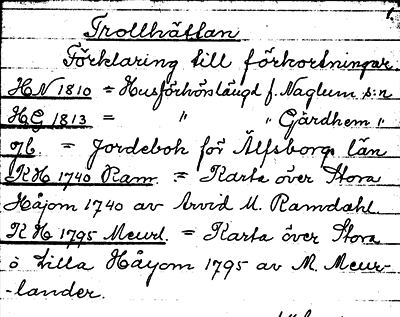 1.
Trollhättan
Förklaring till förkortningar.
HN 1810 = Husförhörslängd f. Naglum s:n
HG 1813 = " " Gärdhem "
Jb. = Jordebok för Älfsborgs län
KH 1740 Ram. = Karta över Stora
Håjom 1740 av Arvid M. Ramdahl.
KH 1795 Meurl. = Karta över Stora
o Lilla Håyom 1795 av M. Meur-
-lander.